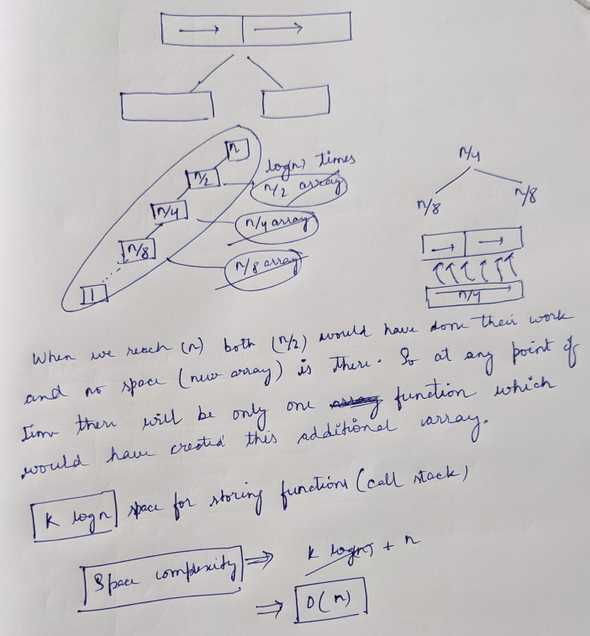 n
n/2
n/4
n/8
1
log(n) times
n/2 array
n/4 array
n/8 array
n/4
n/8 n/8
n/4
When we reach (n) both (n/2) would have done their work
and no space (new array) is there. So at any point of
time there will be only one array function which
would have created this additional array.
K logn space for storing functions (call stack)
Space complexity ⇒ K logn + n
⇒ O(n)